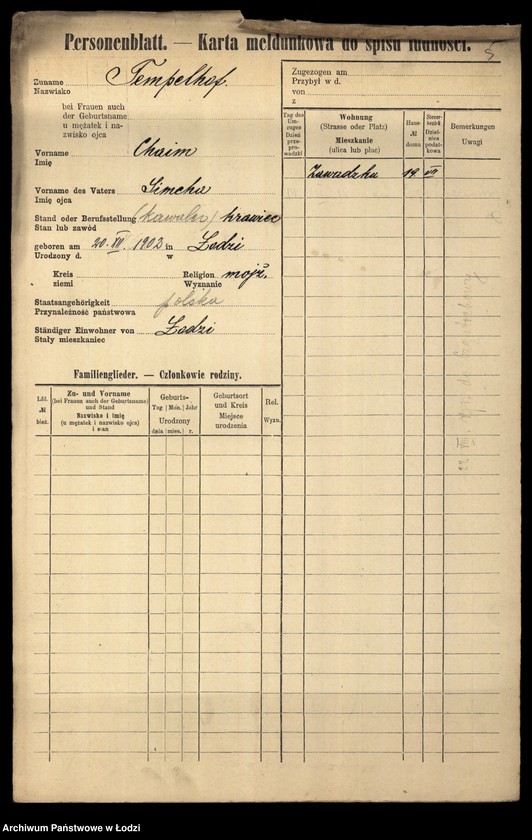 Personenblatt. — Karta meldunkowa do spisu ludności.
5
Zuname Tempelhof.
Nazwisko
bei Frauen auch
der Geburtsname
u mężatek i na-
zwisko ojca
Vorname Chaim
Imię
Vorname des Vaters Simcha
Imię ojca
Stand oder Berufsstellung (kawaler) krawiec
Stan lub zawód
geboren am 20. XII. 1902 in Łodzi
Urodzony d. w
Kreis Religion mojż.
ziemi Wyznanie
Staatsangehörigkeit polska
Przynależność państwowa
Ständiger Einwohner von Łodzi
Stały mieszkaniec
Familienglieder. — Członkowie rodziny.
Lfd.
№
bież.
Zu- und Vorname
(bei Frauen auch der Geburtsname)
und Stand
Nazwisko i imię
(u mężatek i nazwisko ojca)
i stan
Geburts-
Tag | Mon. | Jahr
Urodzony
dnia | mies. | r.
Geburtsort
und Kreis
Miejsce
urodzenia
Rel.
Wyzn.
Zugezogen am
Przybył w d.
von
z
Tag des
Um-
zuges
Dzień
prze-
pro-
wadzki
Wohnung
(Strasse oder Platz)
Mieszkanie
(ulica lub plac)
Haus-
№
domu
Steuer-
bezirk
Dziel-
nica
podat-
kowa
Bemerkungen
Uwagi
Zawadzka 19 VII
Archiwum Państwowe w Łodzi